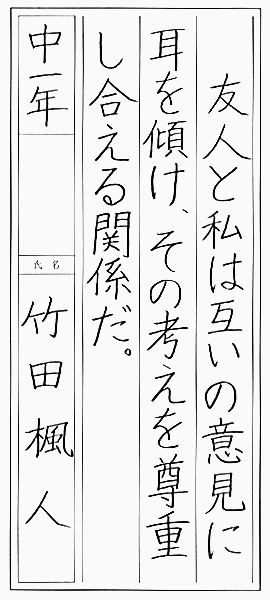 友人と私は互いの意見に
耳を傾け、その考えを尊重
し合える関係だ。
中一年
氏名
竹田楓人